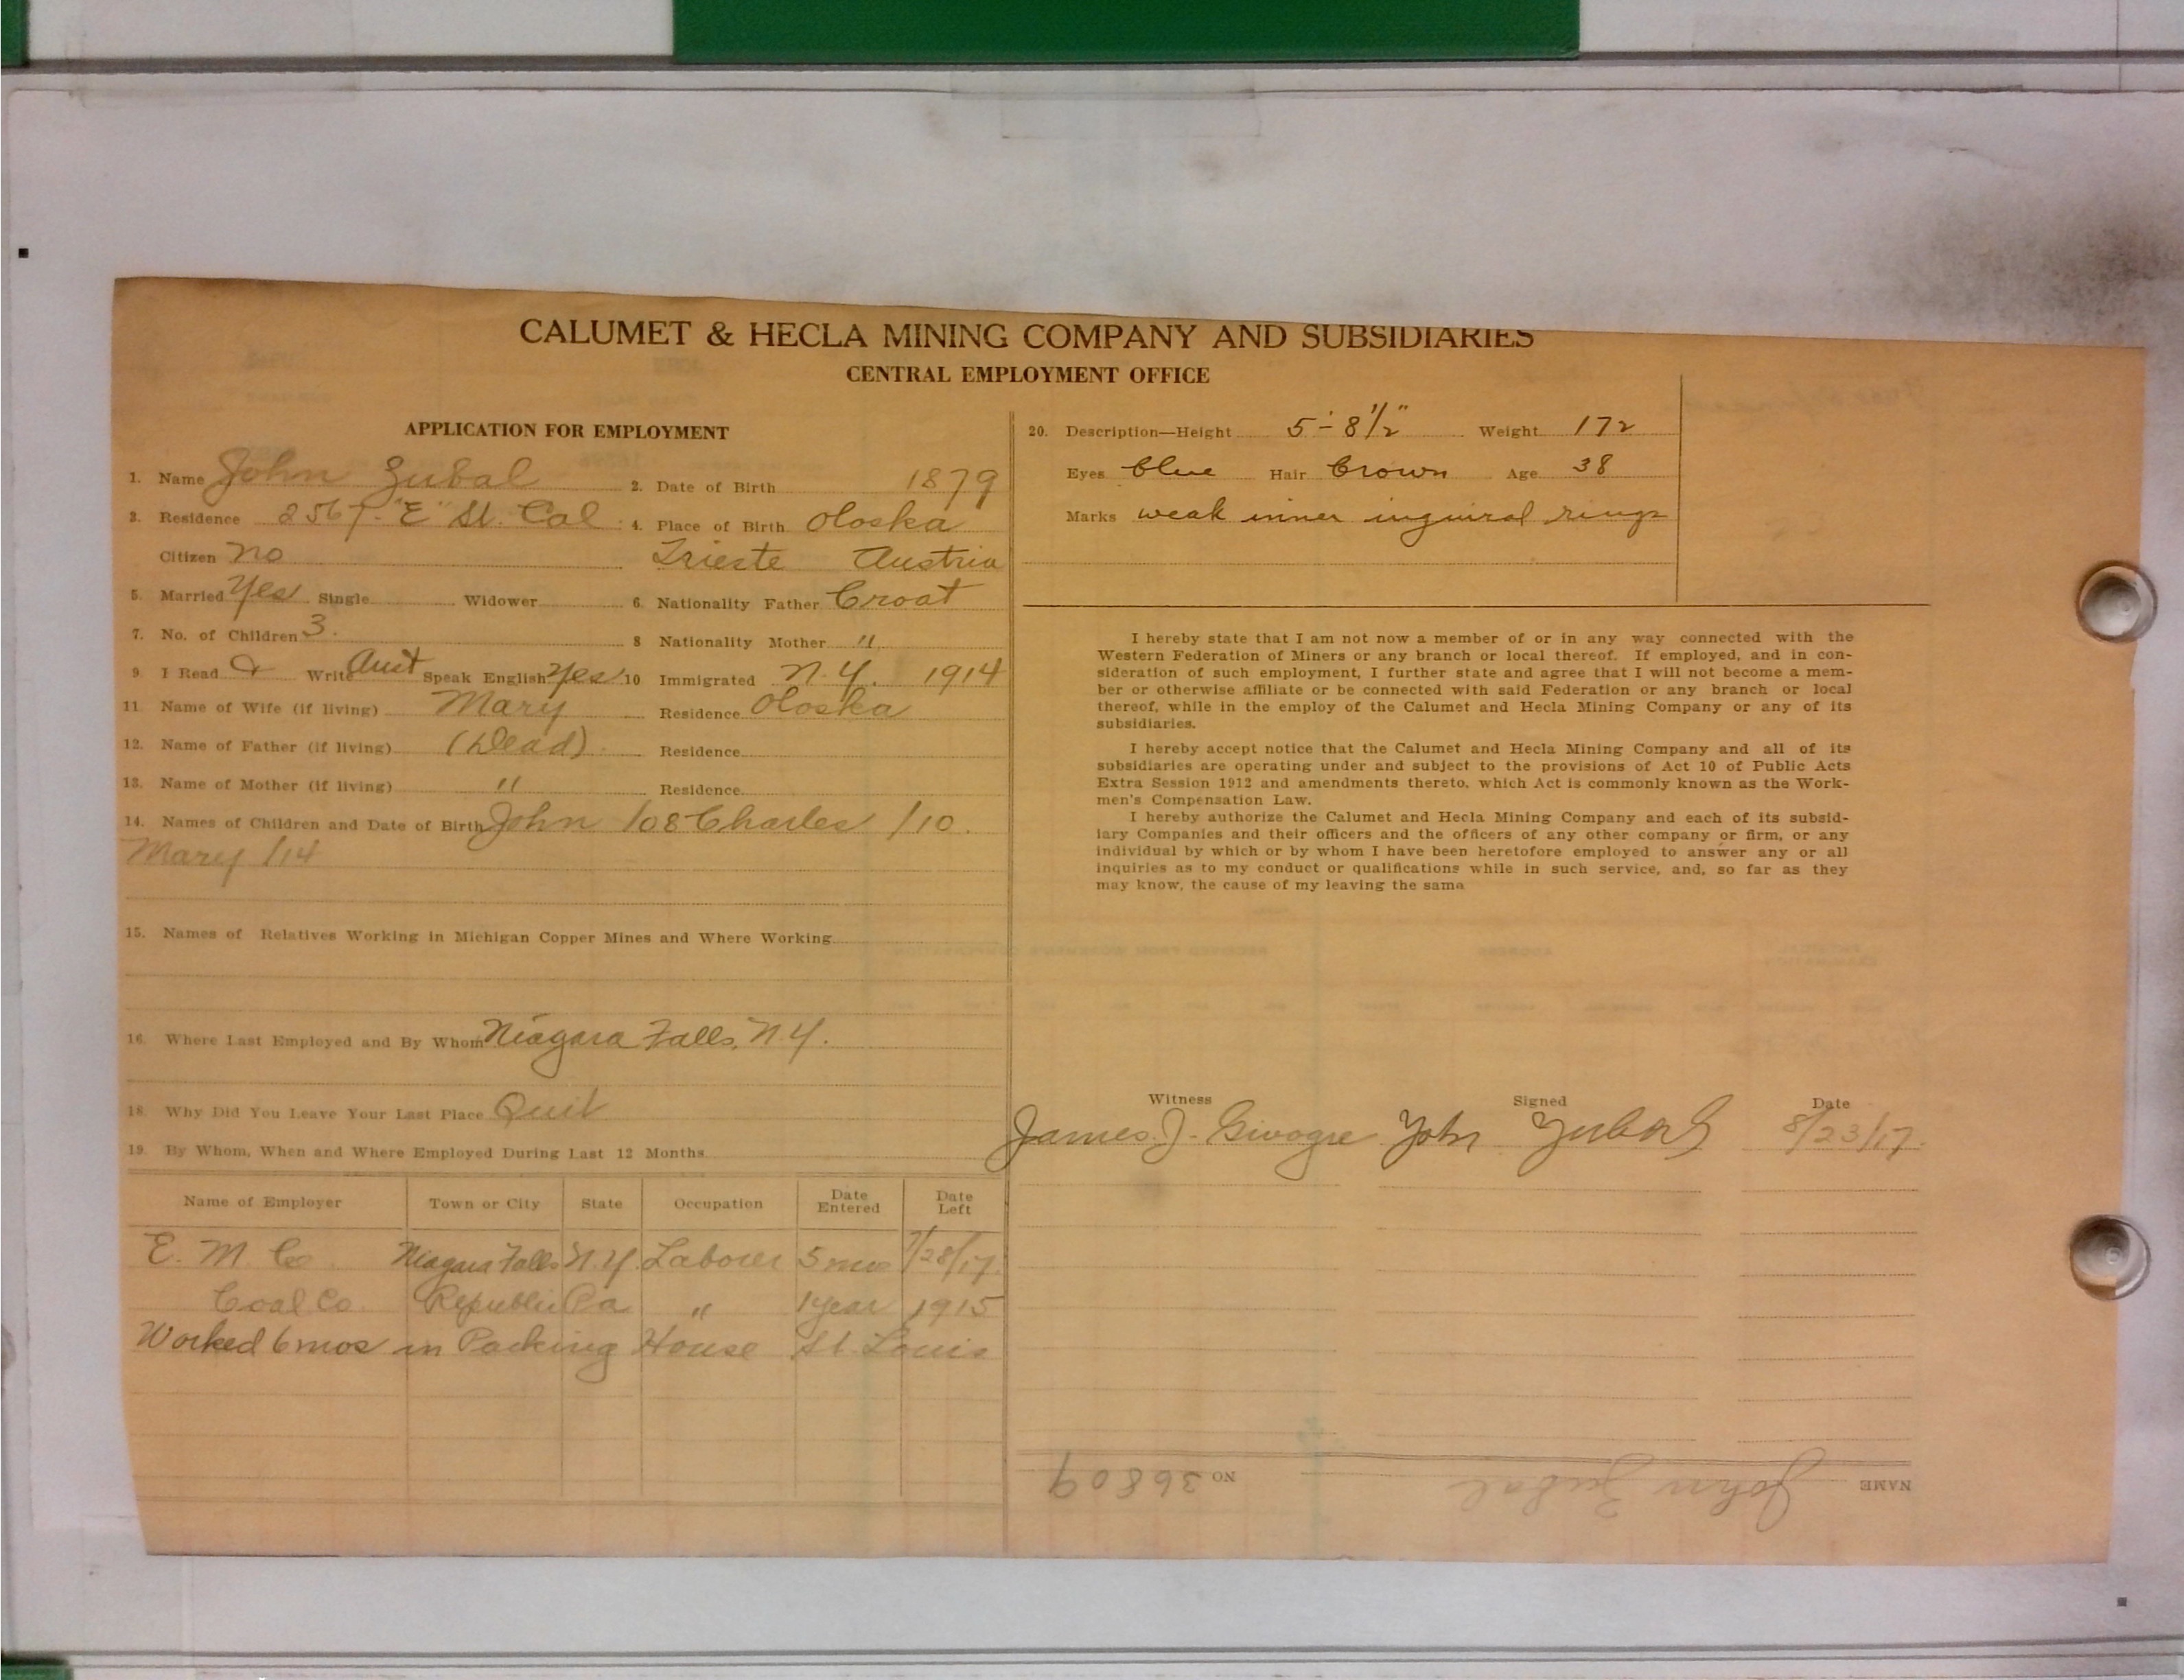 CALUMET & HECLA MINING COMPANY AND SUBSIDIARIES
CENTRAL EMPLOYMENT OFFICE
APPLICATION FOR EMPLOYMENT
1. Name John Zubal 2. Date of Birth 1879
3. Residence 2567- "E" St. Cal 4. Place of Birth Oloska
Citizen no Trieste Austria
5. Married Yes Single Widower 6. Nationality Father Croat
7. No. of Children 3. 8 Nationality Mother "
9 I Read & Write Aust Speak English Yes 10 Immigrated N.Y. 1914
11. Name of Wife (if living) Mary Residence Oloska
12. Name of Father (if living) (Dead) Residence
13. Name of Mother (if living) " Residence
14. Names of Children and Date of Birth John /08 Charles /10.
Mary /14
15. Names of Relatives Working in Michigan Copper Mines and Where Working
16. Where Last Employed and By Whom Niagara Falls, N.Y.
18. Why Did You Leave Your Last Place Quit
19. By Whom, When and Where Employed During Last 12 Months
Name of Employer Town or City State Occupation Date Entered Date Left
E. M. Co Niagara Falls N.Y. Laborer 5 mos 7/28/17.
Coal Co. Republic Pa " 1 year 1915
Worked 6 mos in Packing House St. Louis
20. Description—Height 5'-8 1/2" Weight 172
Eyes blue Hair brown Age 38
Marks weak inner inguinal rings
I hereby state that I am not now a member of or in any way connected with the
Western Federation of Miners or any branch or local thereof. If employed, and in con-
sideration of such employment, I further state and agree that I will not become a mem-
ber or otherwise affiliate or be connected with said Federation or any branch or local
thereof, while in the employ of the Calumet and Hecla Mining Company or any of its
subsidiaries.
I hereby accept notice that the Calumet and Hecla Mining Company and all of its
subsidiaries are operating under and subject to the provisions of Act 10 of Public Acts
Extra Session 1912 and amendments thereto, which Act is commonly known as the Work-
men's Compensation Law.
I hereby authorize the Calumet and Hecla Mining Company and each of its subsid-
iary Companies and their officers and the officers of any other company or firm, or any
individual by which or by whom I have been heretofore employed to answer any or all
inquiries as to my conduct or qualifications while in such service, and, so far as they
may know, the cause of my leaving the same
Witness Signed Date
James J. John Zubal 8/23/17.
NAME John Zubal NO 36809